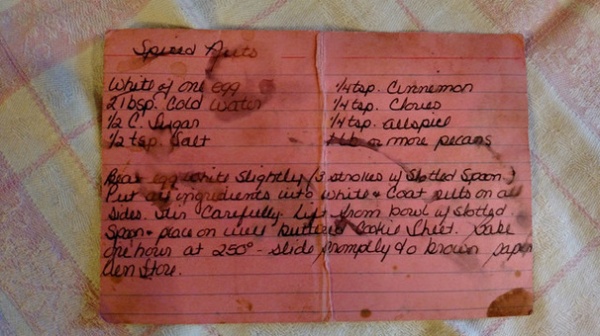 Spiced Nuts
White of one egg
2 tbsp. Cold Water
1/2 C. Sugar
1/2 tsp. Salt
1/4 tsp. Cinnemon
1/4 tsp. Cloves
1/4 tsp. allspice
1 lb or more pecans
Beat egg white slightly (3 strokes w/ Slotted Spoon.)
Put all ingredients into white & Coat nuts on all
sides. Stir Carefully. Lift from bowl w/ slotted
Spoon & place on well buttered Cookie Sheet. Bake
one hour at 250° - slide promptly to brown paper
Store.